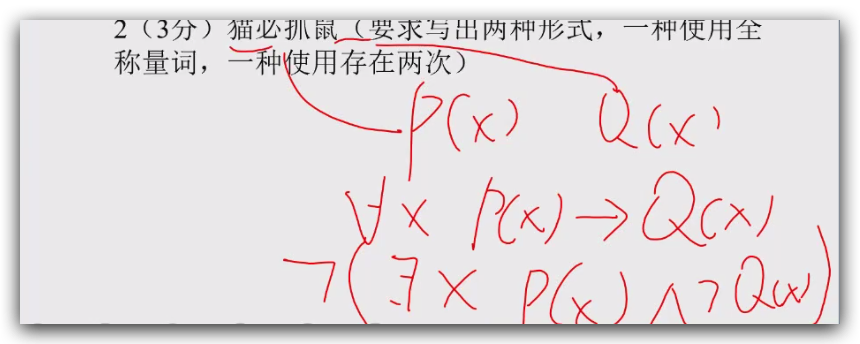 2（3分）猫必抓鼠（要求写出两种形式，一种使用全
称量词，一种使用存在两次）
P(x) Q(x)
∀x P(x)→Q(x)
¬(∃x P(x)∧¬Q(x))